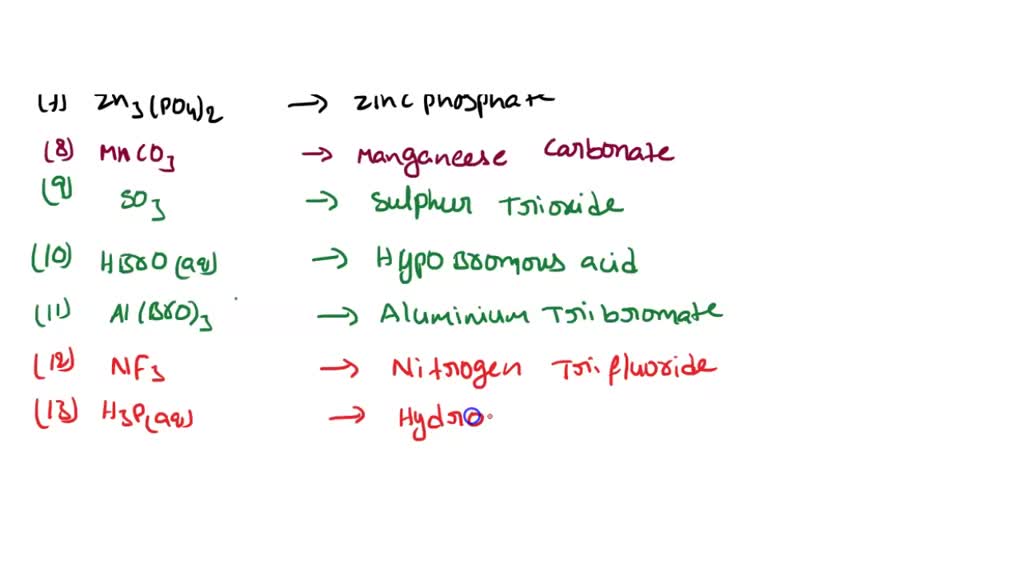 (7) Zn3(PO4)2 → Zinc phosphate
(8) MnCO3 → Manganeese Carbonate
(9) SO3 → Sulphur Trioxide
(10) HBrO(aq) → Hypo Bromous acid
(11) Al(BrO)3 → Aluminium Tribromate
(12) NF3 → Nitrogen Trifluoride
(13) H3P(aq) → Hydro